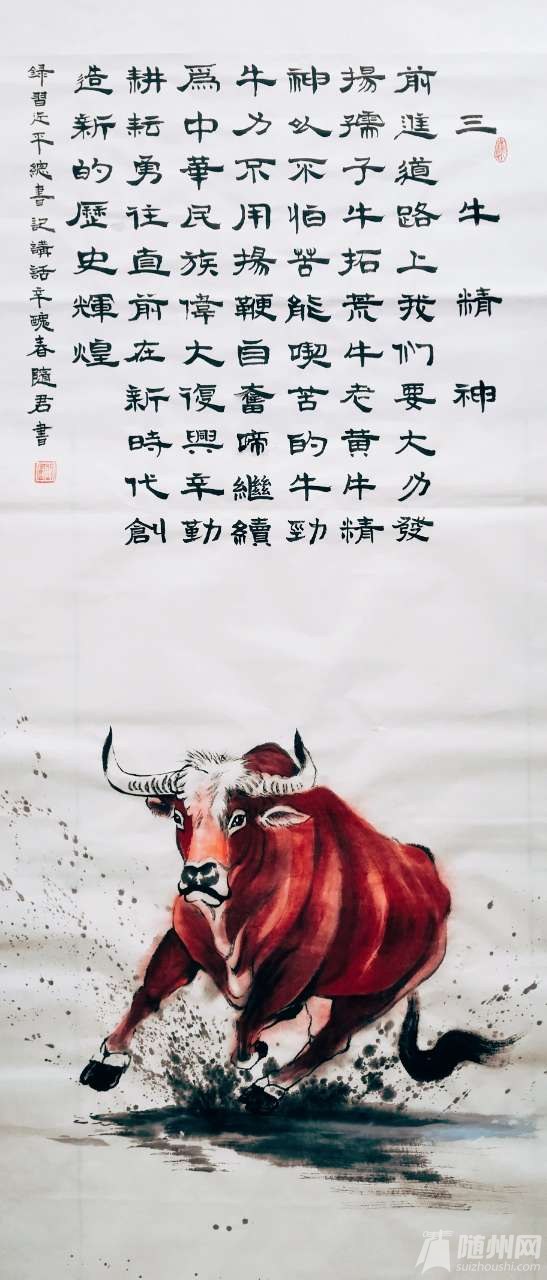 三牛精神
前進道路上我们要大力發
揚孺子牛拓荒牛老黄牛精
神以不怕苦能喫苦的牛勁
牛力不用揚鞭自奮蹄繼續
爲中華民族偉大復興辛勤
耕耘勇往直前在新時代創
造新的歷史輝煌
録習近平總書記講話辛醜春隨君書
随州网
suizhoushi.com